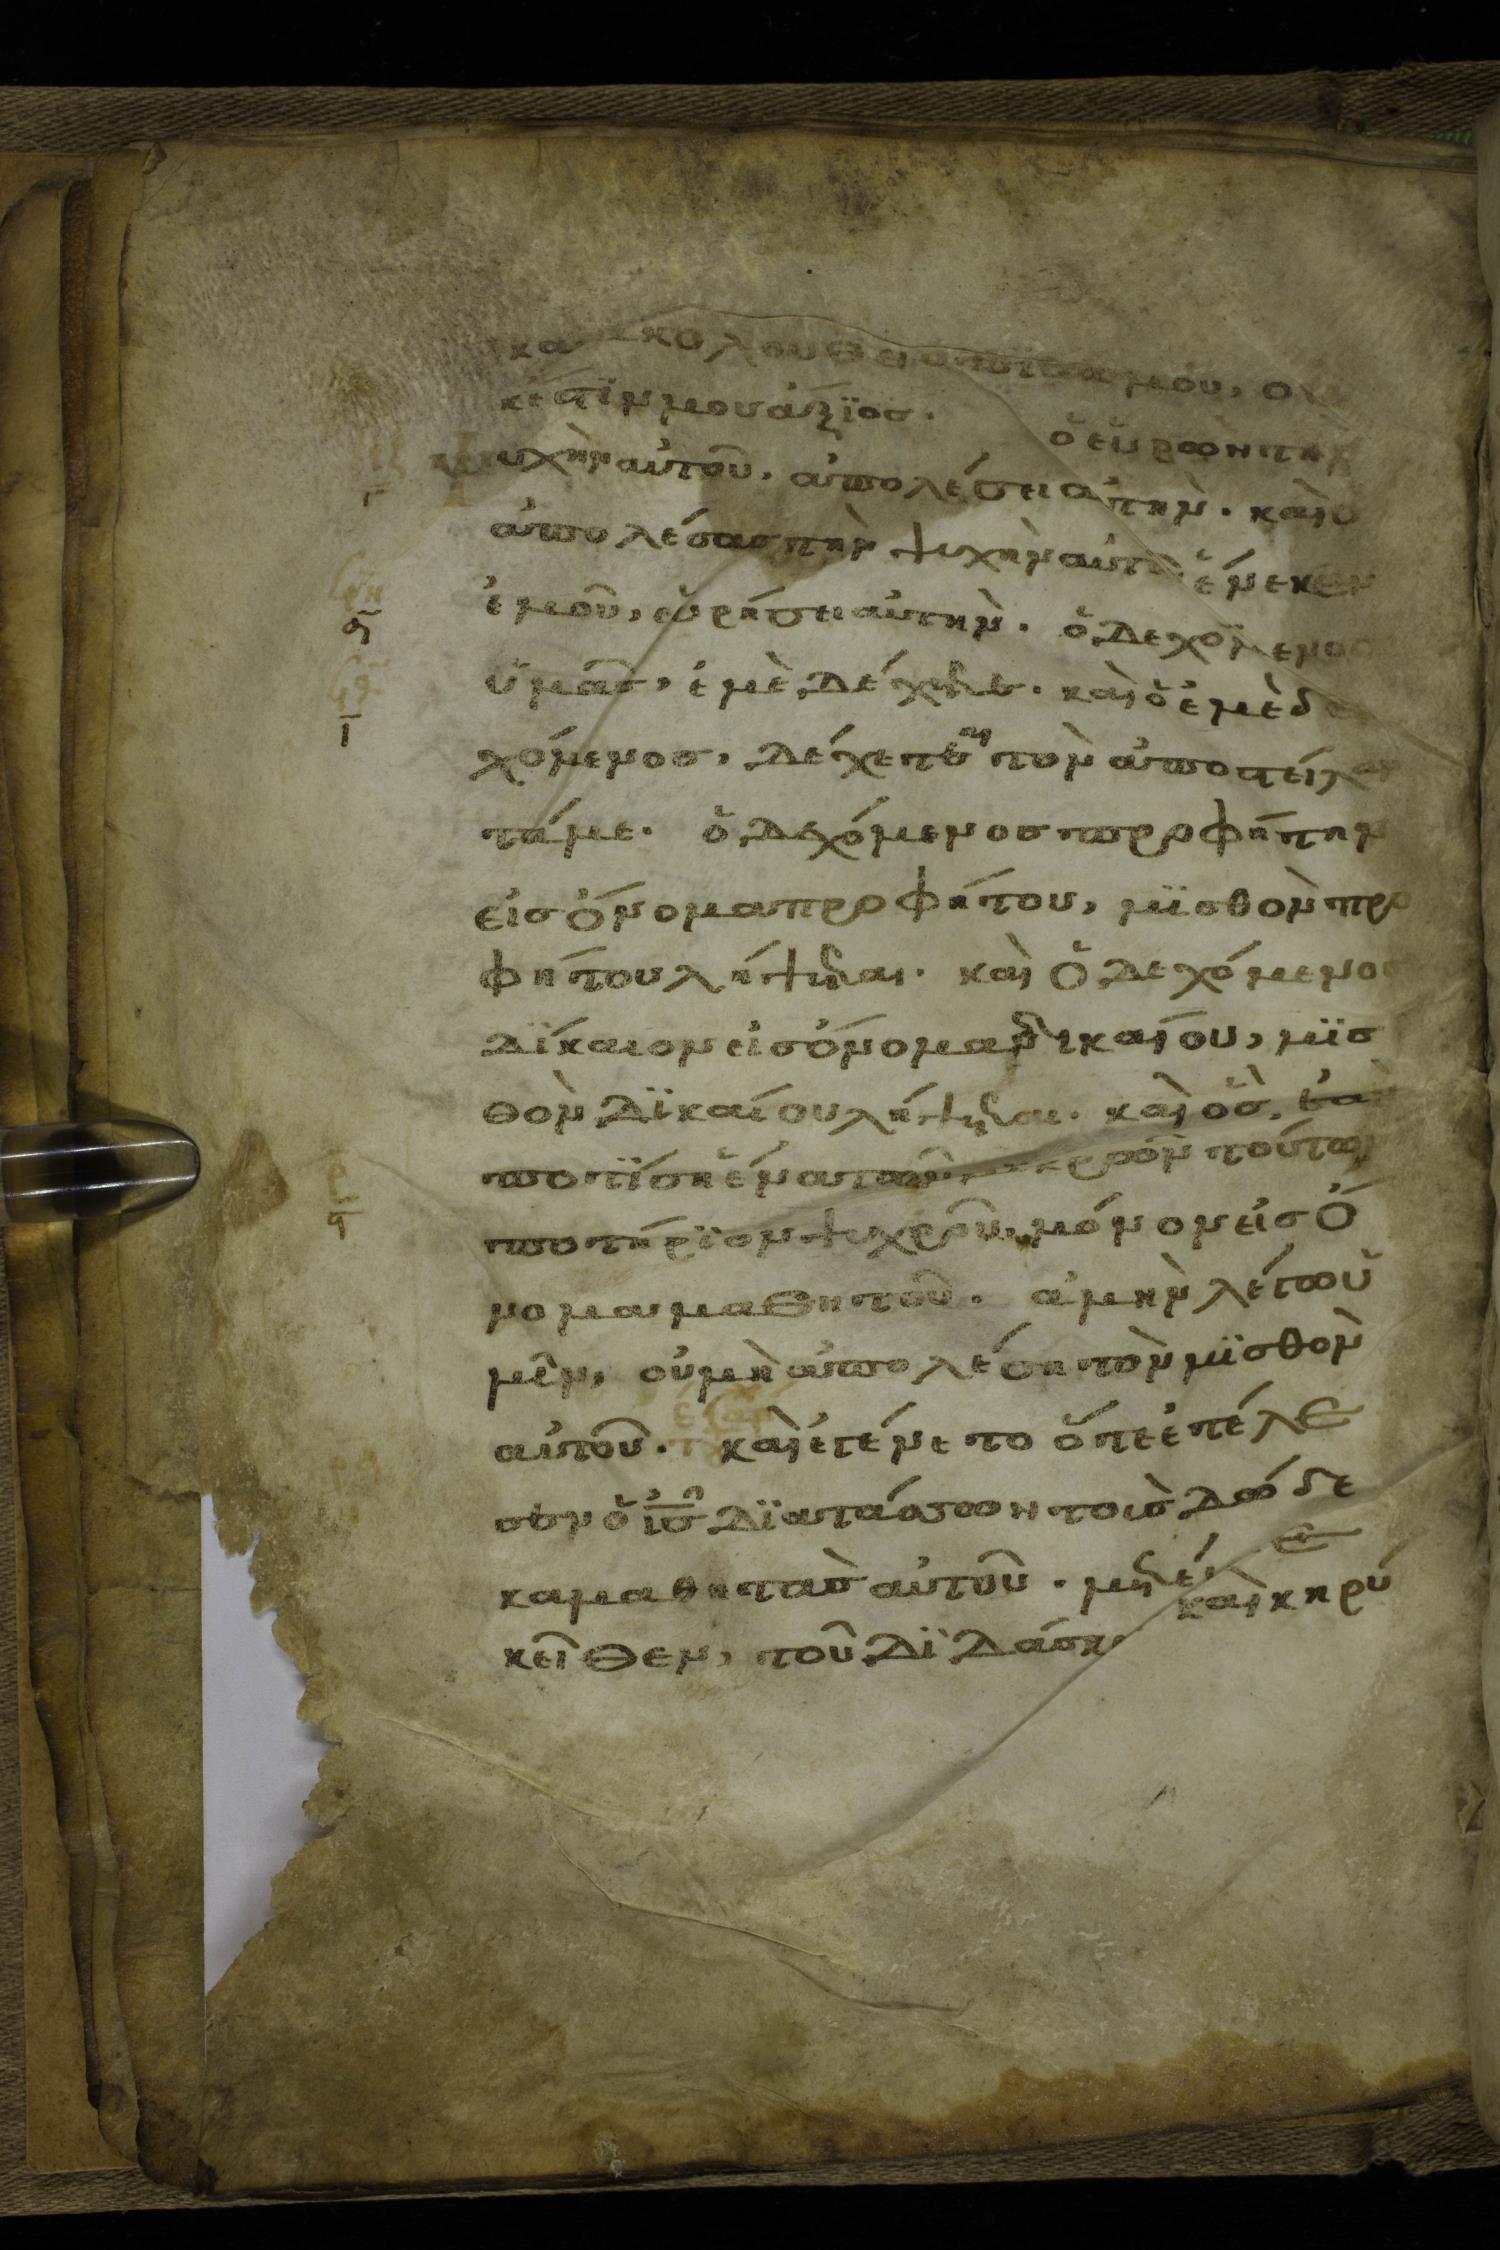 καὶ ἀκολουθεῖ ὀπίσω μου, οὐ
κἔστιν μου ἄξιος. ὁ εὑρὼν τὴν
ψυχὴν αὐτοῦ, ἀπολέσει αὐτήν. καὶ ὁ
ἀπολέσας τὴν ψυχὴν αὐτοῦ ἕνεκεν
ἐμοῦ, εὑρήσει αὐτήν. ὁ δεχόμενος
ὑμᾶς, ἐμὲ δέχεται. καὶ ὁ ἐμὲ δε
χόμενος, δέχεται τὸν ἀποστείλαν
τά με. ὁ δεχόμενος προφήτην
εἰς ὄνομα προφήτου, μϊσθὸν προ
φήτου λήψεται. καὶ ὁ δεχόμενος
δΐκαιον εἰς ὄνομα δικαίου, μϊσ
θὸν δϊκαίου λήψεται. καὶ ὃς ἐὰν
ποτΐση ἕνα τῶν μικρῶν τούτων
ποτήρϊον ψυχροῦ, μόνον εἰς ὄ
νομα μαθητοῦ. ἀμὴν λέγω ὑ
μῖν, οὐ μὴ ἀπολέση τὸν μϊσθὸν
αὐτοῦ. καὶ ἐγένετο ὅτε ἐτέλε
σεν ὁ ι̅ς̅ δϊατάσσων τοῖς δώδε
κα μαθηταῖς αὐτοῦ. μετέβη ἐ
κεῖθεν, τοῦ δϊδάσκειν καὶ κηρύ